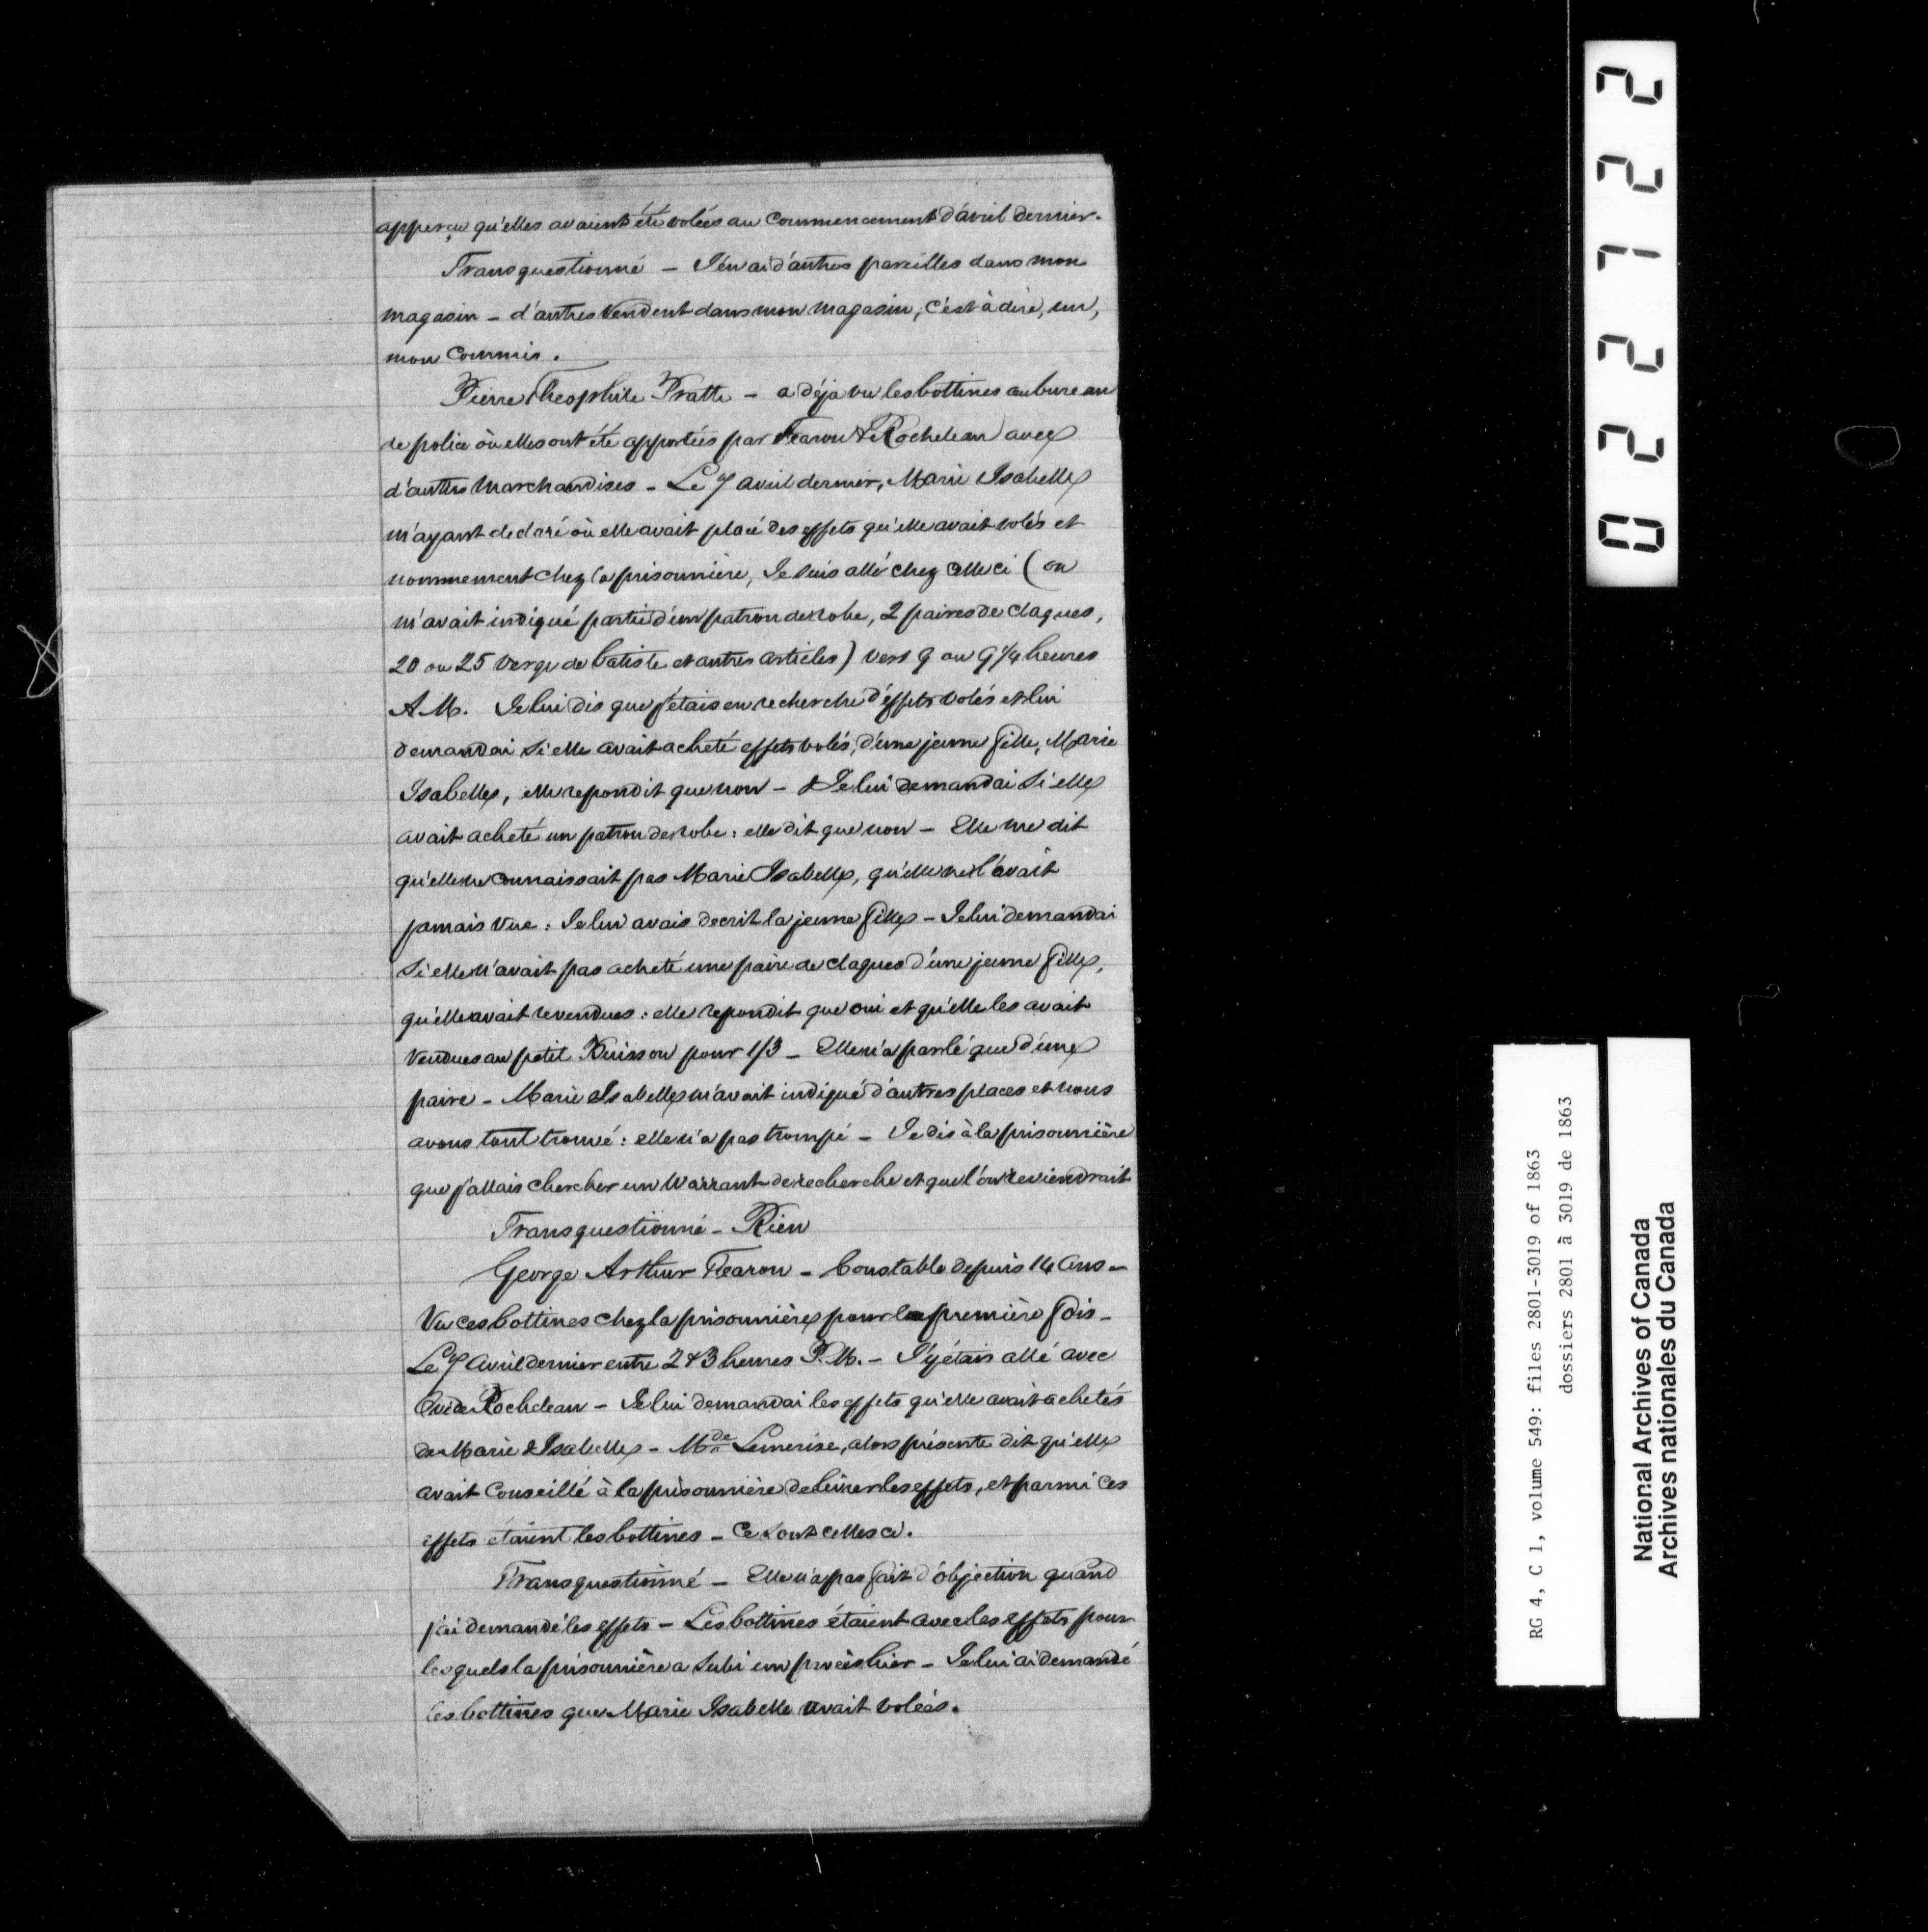 apperçu qu'elles avaient été volées au commencement d'avril dernier.
Transquestionné – J'en ai d'autres pareilles dans mon
magasin – d'autres vendent dans mon magasin, c'est à dire, un,
mon commis.
Pierre Theophile Pratte – a déja vu les bottines au bureau
de police où elles ont été apportées par Fearon & Rocheleau avec
d'autres marchandises – Le 7 avril dernier, Marie Isabelle
m'ayant declaré où elle avait placé des effets qu'elle avait volés et
nommement chez la prisonnière, Je suis allé chez celle ci (on
m'avait indiqué partie d'un patron de robe, 2 paires de claques,
20 ou 25 verge de batiste et autres articles) vers 9 ou 9 1/4 heures
A.M. Je lui dis que j'étais en recherche d'effets volés et lui
demandai si elle avait acheté effets volés, d'une jeune fille, Marie
Isabelle, elle repondit que non – & Je lui demandai si elle
avait acheté un patron de robe : elle dit que non – Elle me dit
qu'elle ne connaissait pas Marie Isabelle, qu'elle ne l'avait
jamais vue : Je lui avais decrit la jeune fille – Je lui demandai
si elle n'avait pas acheté une paire de claques d'une jeune fille,
qu'elle avait revendues : elle repondit que oui et qu'elle les avait
vendues au petit Buisson pour 1/3 – Elle n'a parlé que d'une
paire – Marie Isabelle m'avait indiqué d'autres places et nous
avons tout trouvé : elle n'a pas trompé – Je dis à la prisonnière
que j'allais chercher un Warrant de recherche et que l'on reviendrait
Transquestionné – Rien
George Arthur Fearon – Constable depuis 14 ans –
Vu ces bottines chez la prisonnière pour la première fois –
Le 7 avril dernier entre 2 & 3 heures P.M. – J'y étais allé avec
Ovide Rocheleau – Je lui demandai les effets qu'elle avait achetés
de Marie Isabelle – Mde Lemerise, alors présente dit qu'elle
avait conseillé à la prisonnière de livrer les effets, et parmi ces
effets étaient les bottines – Ce sont celles ci.
Transquestionné – Elle n'a pas fait d'objection quand
j'ai demandé les effets – Les bottines étaient avec les effets pour
lesquels la prisonnière a subi un procès hier – Je lui ai demandé
les bottines que Marie Isabelle avait volées.
022122
RG 4, C 1, volume 549: files 2801-3019 of 1863
dossiers 2801 à 3019 de 1863
National Archives of Canada
Archives nationales du Canada